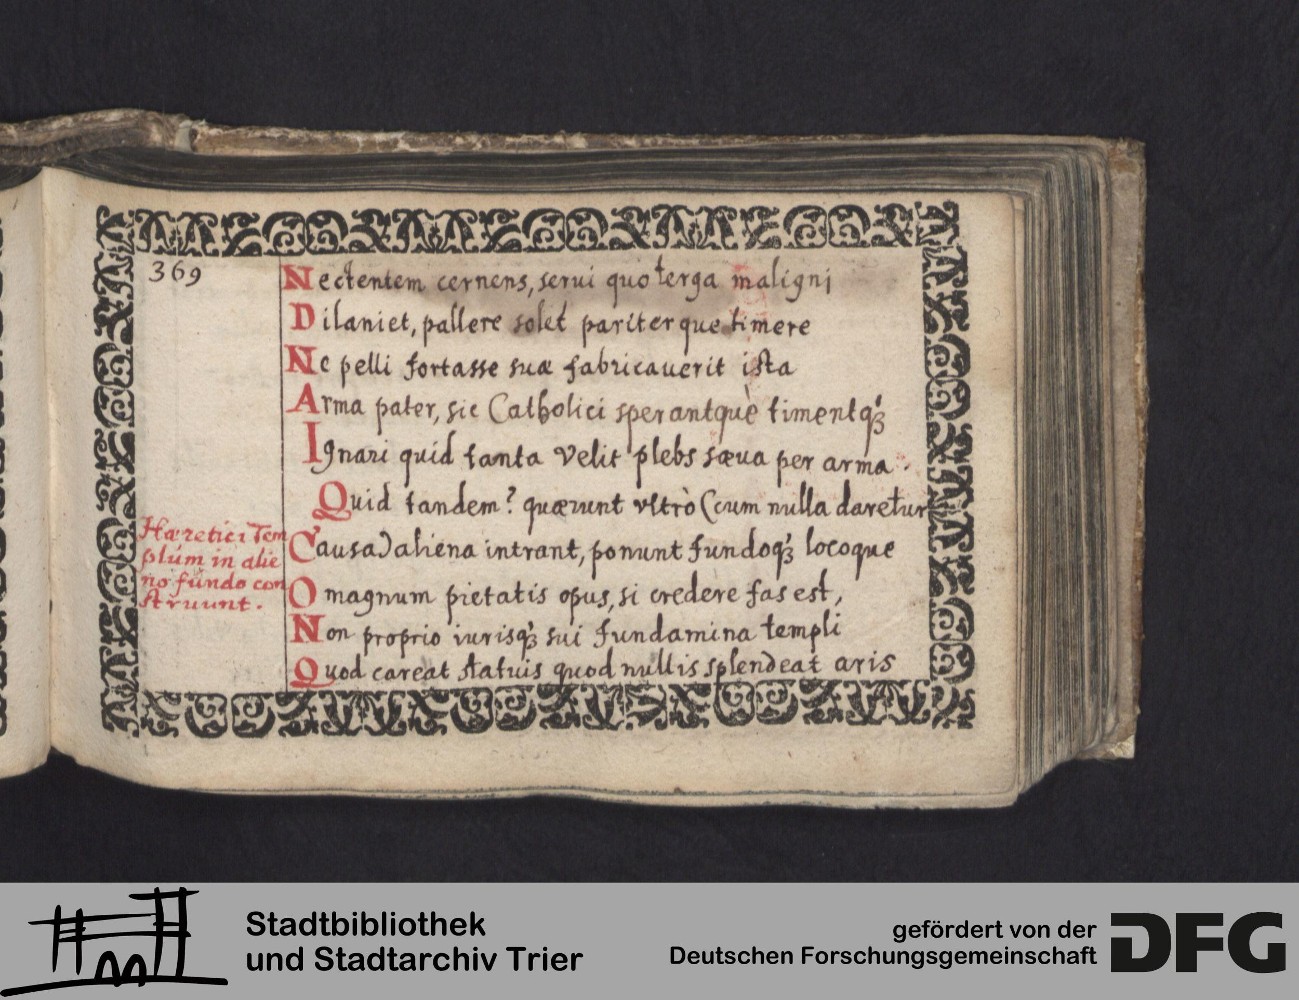 369
Nectentem cernens, serui quo terga maligni
Dilaniet, pallere solet pariterque timere
Ne pelli fortasse suæ fabricauerit ista
Arma pater, sic Catholici sperantquè timentq;
Ignari quid tanta velit plebs sæua per arma.
Quid tandem? quærunt vltrò (cum nulla daretur
Causa) aliena intrant, ponunt fundoq; locoque
O magnum pietatis opus, si credere fas est,
Non proprio iurisq; sui fundamina templi
Quod careat statuis quod nullis splendeat aris
Hæretici Tem
plúm in alie
no fundo con
struunt.
Stadtbibliothek
und Stadtarchiv Trier
gefördert von der
Deutschen Forschungsgemeinschaft
DFG